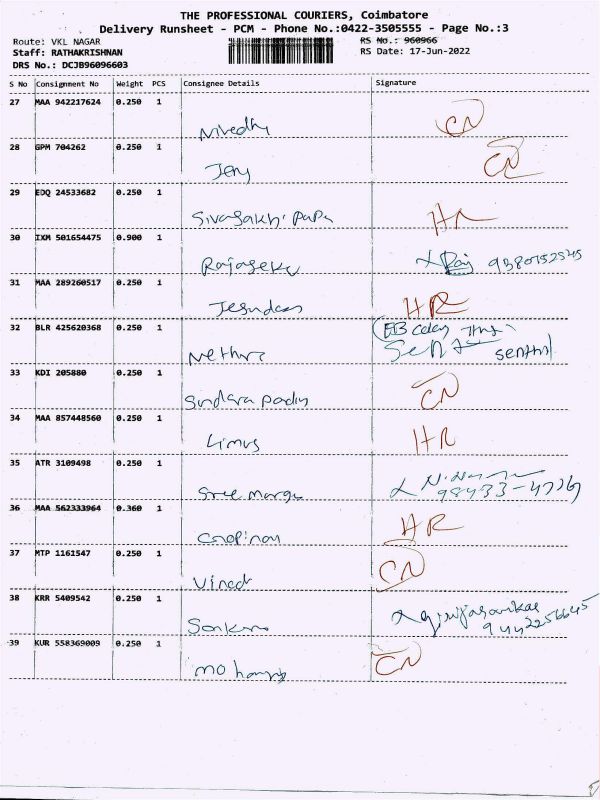 THE PROFESSIONAL COURIERS, Coimbatore
Delivery Runsheet - PCM - Phone No.:0422-3505555 - Page No.:3
Route: VKL NAGAR
RS No.: 960966
Staff: RATHAKRISHNAN
RS Date: 17-Jun-2022
DRS No.: DCJB96096603
S No Consignment No Weight PCS Consignee Details Signature
27 MAA 942217624 0.250 1
Nivedhy CN
28 GPM 704262 0.250 1
Jeny CN
29 EDQ 24533682 0.250 1
Sivasakhi papa HR
30 IXM 501654475 0.900 1
Rajaseku Raj 9380752545
31 MAA 289260517 0.250 1
Jesudass HR
32 BLR 425620368 0.250 1
EB
Nethra senthil
33 KDI 205880 0.250 1
Sundara pandy CN
34 MAA 857448560 0.250 1
Limus HR
35 ATR 3109498 0.250 1
Sree 98433-47767
36 MAA 562333964 0.360 1
Gopinan HR
37 MTP 1161547 0.250 1
Vinod CN
38 KRR 5409542 0.250 1
Sankar girijasankar
9442256645
39 KUR 558369009 0.250 1
mohan CN